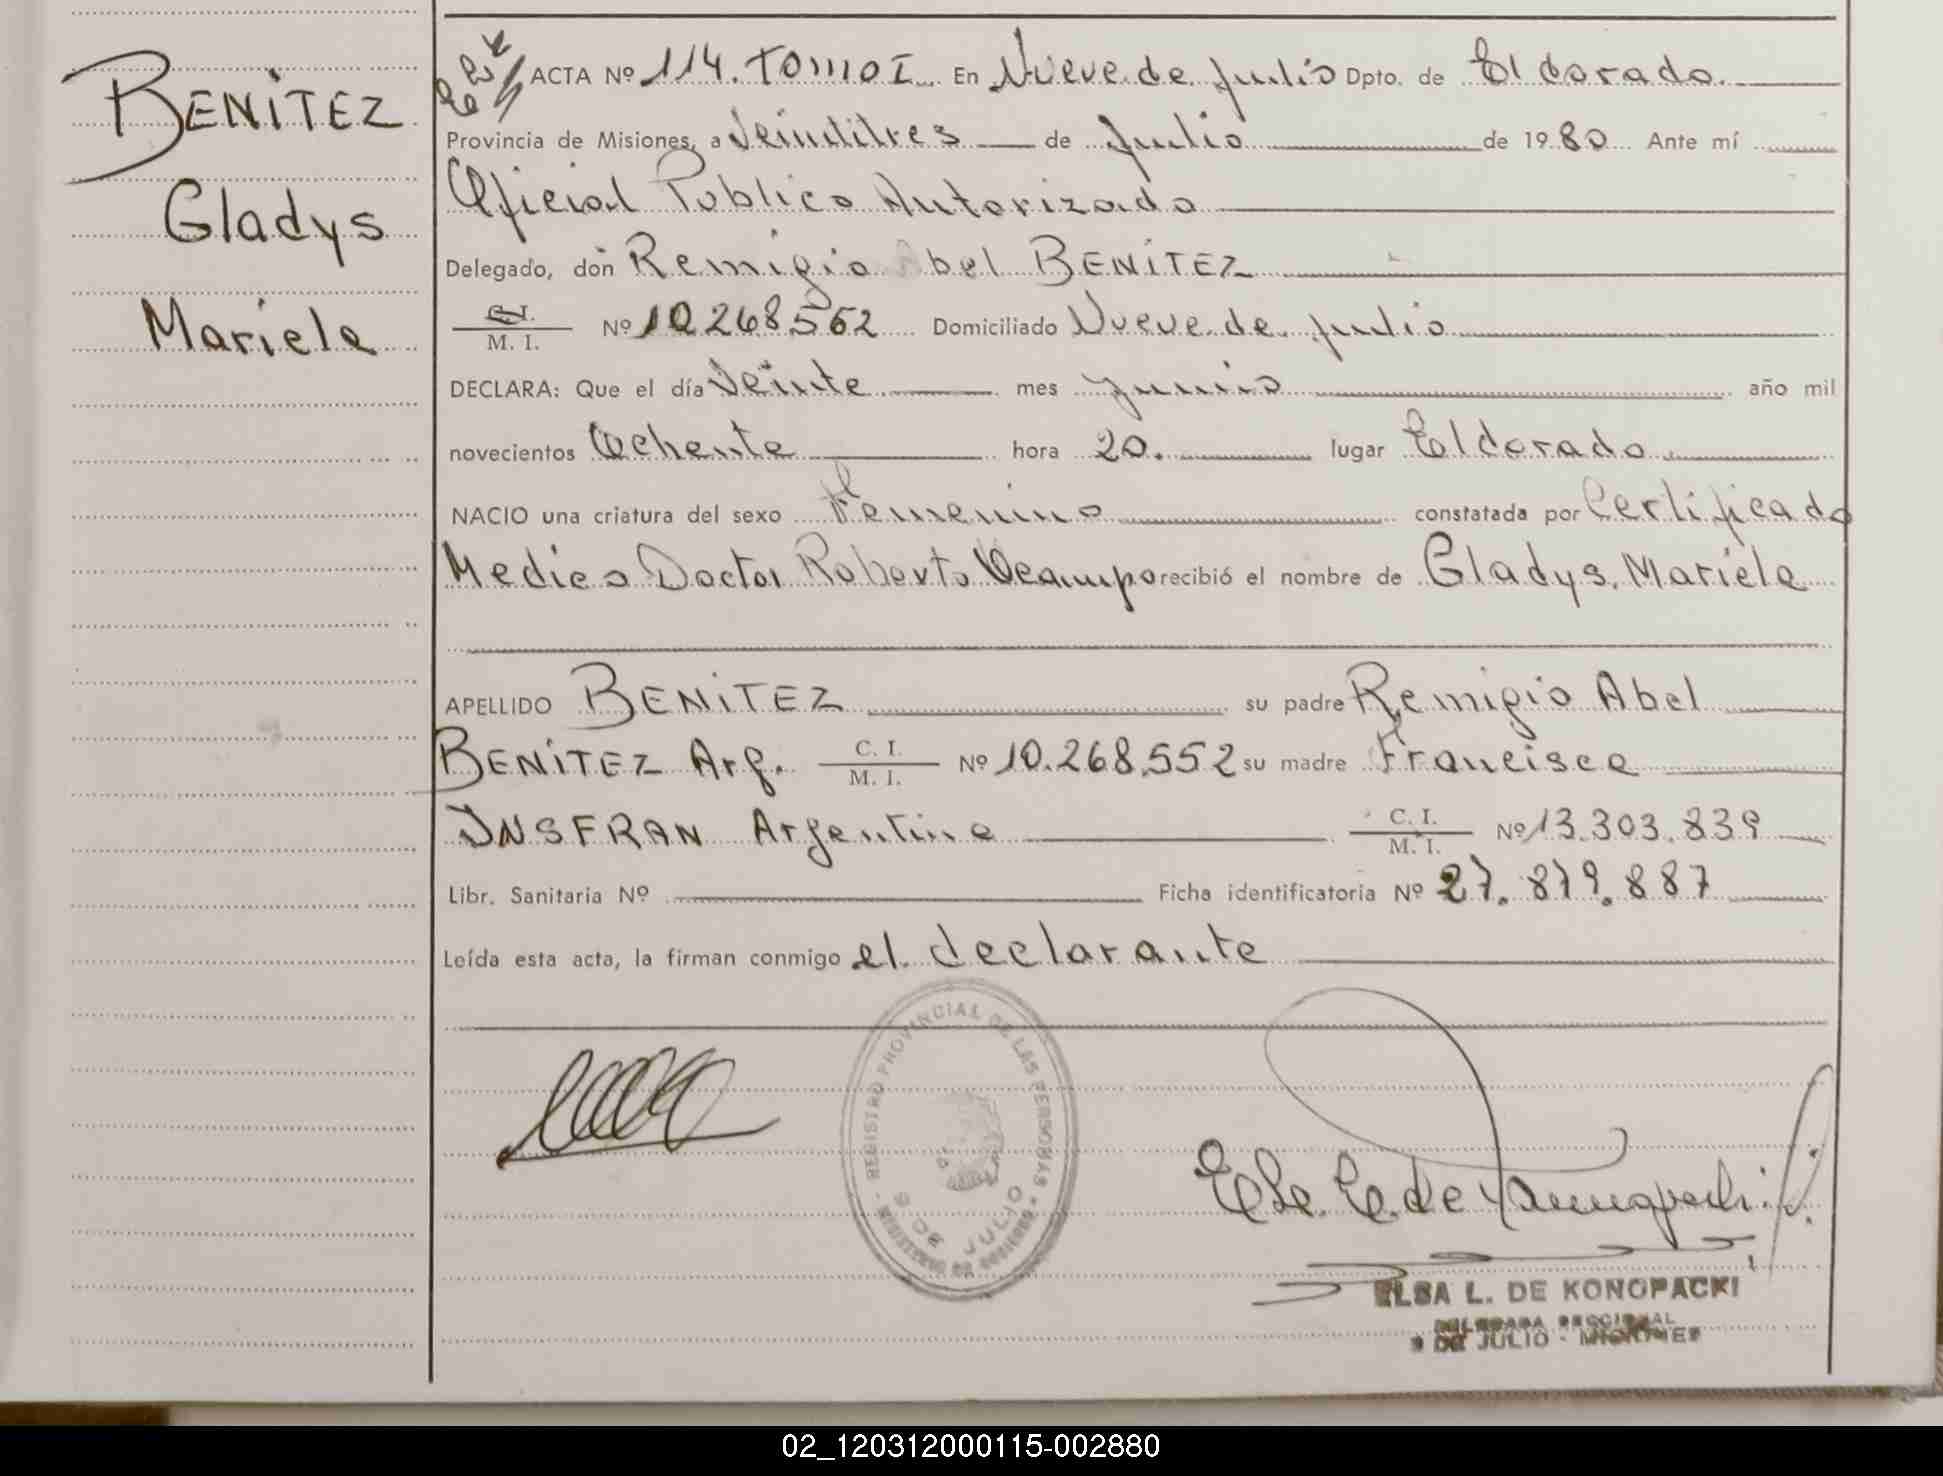 BENITEZ
Gladys
Mariela
ACTA Nº 114. TOMO I En Nueve de Julio Dpto. de Eldorado.
Provincia de Misiones, a Veintitres de Julio de 1980 Ante mí
Oficial Publico Autorizado
Delegado, don Remigio Abel BENITEZ
C. I.
M. I. Nº 10.268.552 Domiciliado Nueve de Julio
DECLARA: Que el día Veinte mes Junio año mil
novecientos Ochenta hora 20. lugar Eldorado
NACIO una criatura del sexo Femenino constatada por Certificado
Medico Doctor Roberto Ocampo recibió el nombre de Gladys Mariela
APELLIDO BENITEZ su padre Remigio Abel
BENITEZ Arg. C. I. M. I. Nº 10.268.552 su madre Francisca
INSFRAN Argentina C. I. M. I. Nº 13.303.839
Libr. Sanitaria Nº Ficha identificatoria Nº 27.879.887
Leída esta acta, la firman conmigo el declarante
REGISTRO PROVINCIAL DE LAS PERSONAS
9 DE JULIO
MINISTERIO DE GOBIERNO
ELSA L. DE KONOPACKI
DELEGADA SECCIONAL
9 DE JULIO - MISIONES
02_120312000115-002880